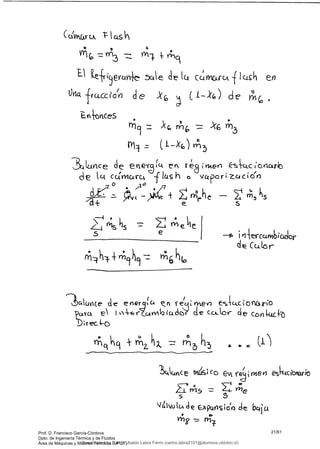 Cámara Flash
ṁ6 = ṁ3 = ṁ7 + ṁ9
El Refrigerante sale de la cámara flash en
una fracción de X6 y (1-X6) de ṁ6.
Entonces
ṁ9 = X6 ṁ6 = X6 ṁ3
ṁ7 = (1-X6) ṁ3
Balance de energía en régimen estacionario
de la cámara flash o vaporización
dE/dt = Q̇vc - Ẇvc + Σ ṁe he - Σ ṁs hs
Σ ṁs hs = Σ ṁe he
→ intercambiador
de Calor
ṁ7h7 + ṁ9h9 = ṁ6h6
Balance de energía en régimen estacionario
para el intercambiador de calor de contacto
Directo
ṁ9 h9 + ṁ2 h2 = ṁ3 h3 ... (1)
Balance másico en régimen estacionario
Σ ṁs = Σ ṁe
Válvula de expansión de baja
ṁ8 = ṁ7
Prof. D. Francisco García-Córdova.
Dpto. de Ingeniería Térmica y de Fluidos
Área de Máquinas y Motores Térmicos (UPCT)
21/61
(carlos.labra2101@alumnos.ubiobio.cl)